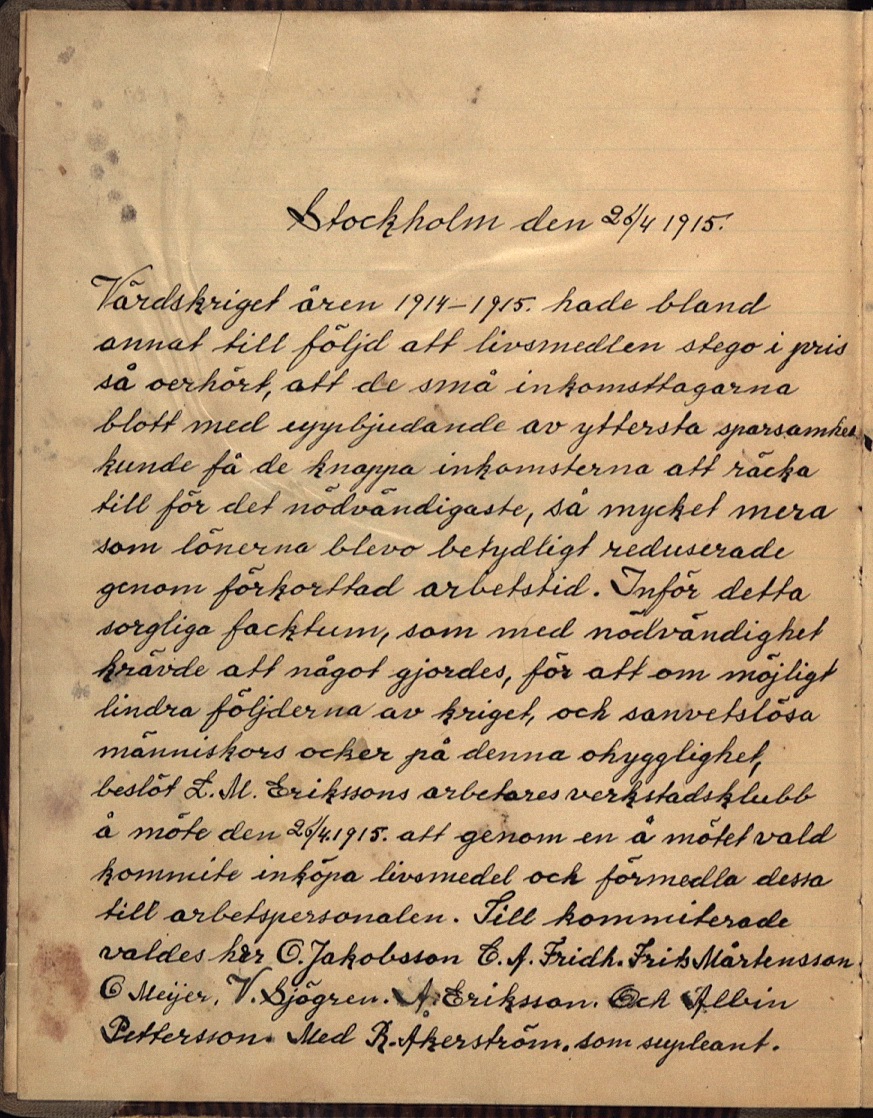 Stockholm den 26/4 1915.
Värdskriget åren 1914-1915. hade bland
annat till följd att livsmedlen stego i pris
så oerhört, att de små inkomsttagarna
blott med uppbjudande av yttersta sparsamhet
kunde få de knappa inkomsterna att räcka
till för det nödvändigaste, så mycket mera
som lönerna blevo betydligt reduserade
genom förkortad arbetstid. Inför detta
sorgliga facktum, som med nödvändighet
krävde att något gjordes, för att om möjligt
lindra följderna av kriget, och sanvetslösa
människors ocker på denna ohygglighet,
beslöt L. M. Erikssons arbetares verkstadsklubb
å möte den 26/4.1915. att genom en å mötet vald
kommite inköpa livsmedel och förmedla dessa
till arbetspersonalen. Till kommiterade
valdes hrr O. Jakobsson C. A. Fridh. Frits Mårtensson
C Meijer. V. Sjögren. A. Eriksson. Och Albin
Pettersson. Med R. Åkerström. som supleant.